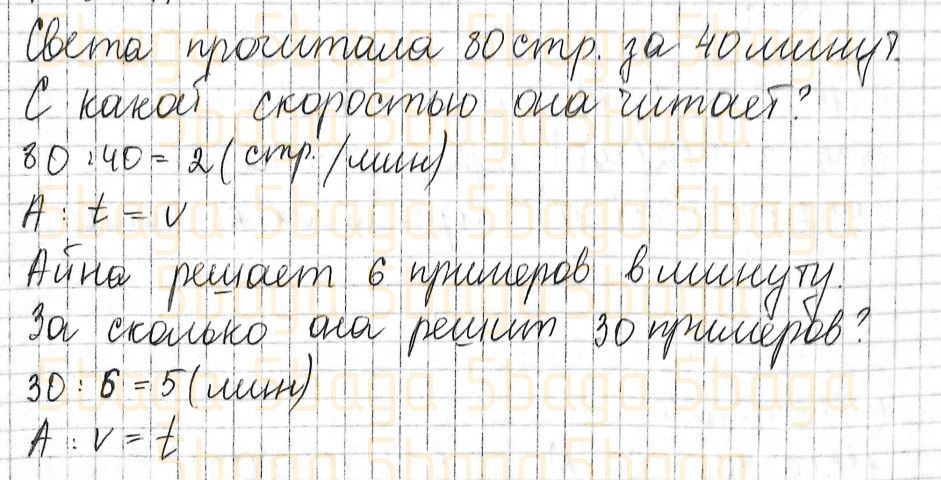 Света прочитала 80 стр. за 40 минут.
С какой скоростью она читает?
80 : 40 = 2 (стр./мин)
A : t = v
Айна решает 6 примеров в минуту.
За сколько она решит 30 примеров?
30 : 6 = 5 (мин)
A : v = t